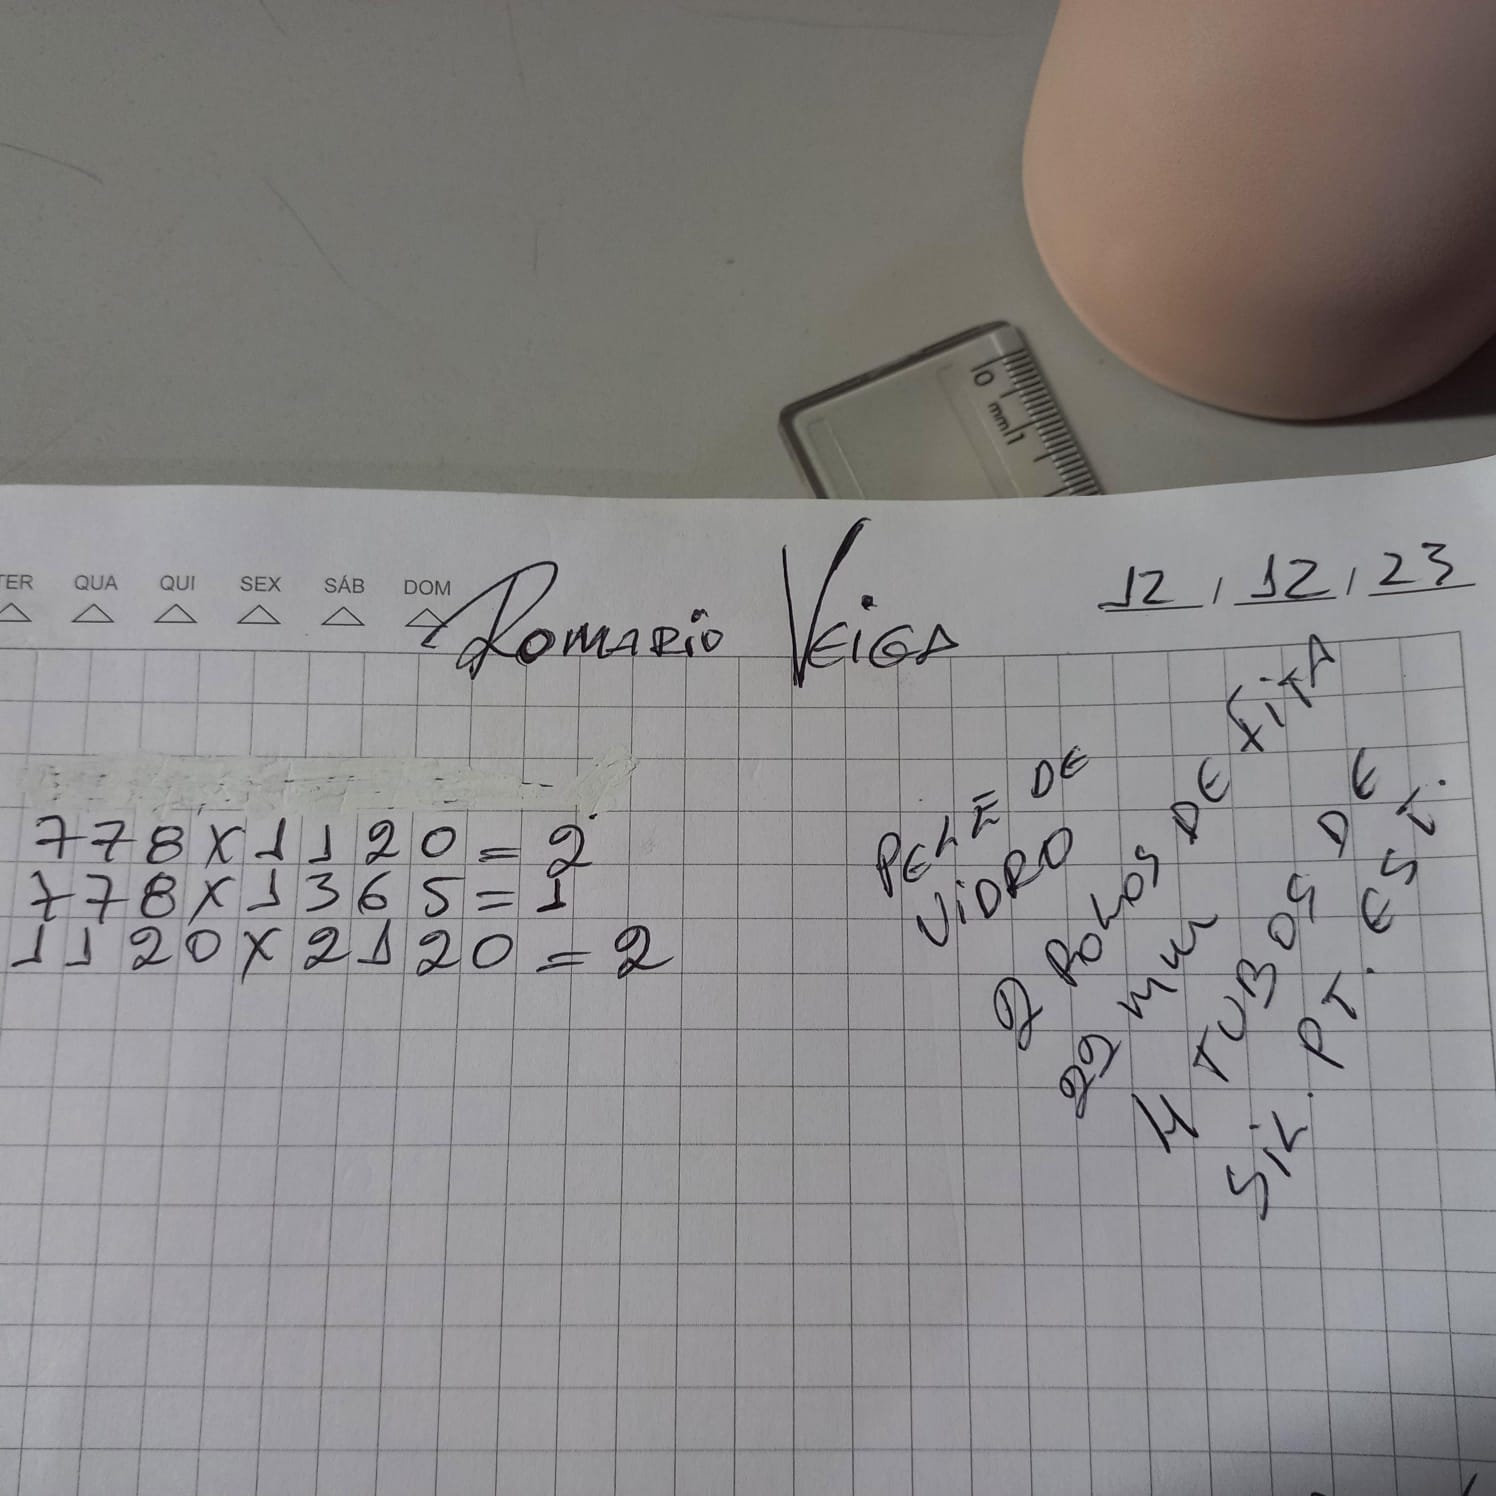 0
mm 1
TER QUA QUI SEX SÁB DOM
Romario Veiga
12, 12, 23
778 x 1120 = 2
778 x 1365 = 1
1120 x 2120 = 2
PELE DE
VIDRO
2 ROLOS DE FITA
22 mm
4 TUBOS DE
SIL. PT. EST.